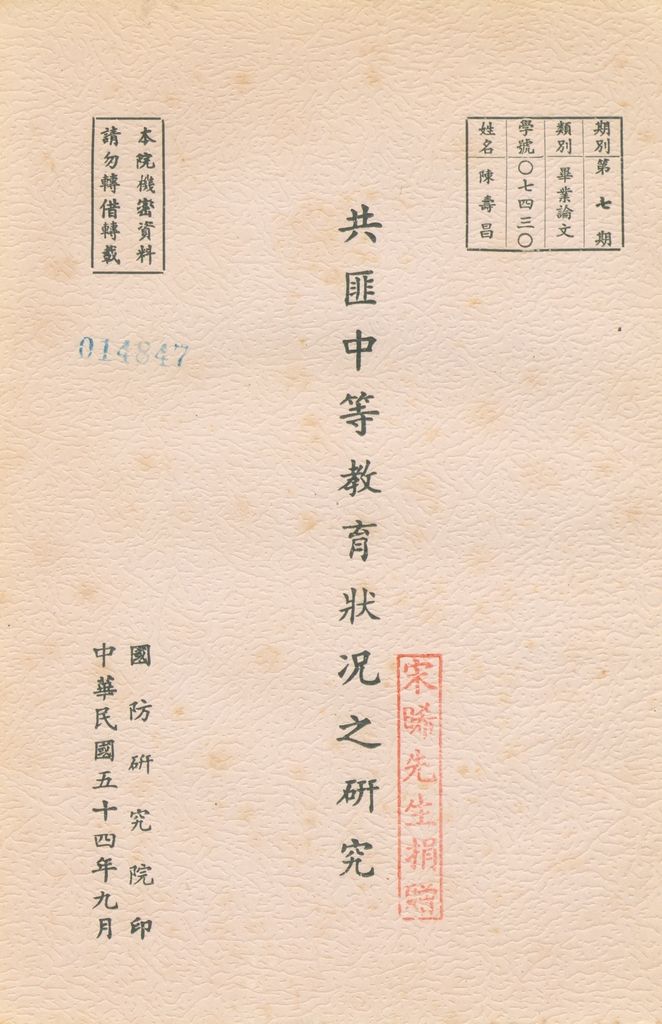 期別 第七期
類別 畢業論文
學號 〇七四三〇
姓名 陳壽昌
共匪中等教育狀況之研究
宋晞先生捐贈
本院機密資料
請勿轉借轉載
014847
國防研究院印
中華民國五十四年九月